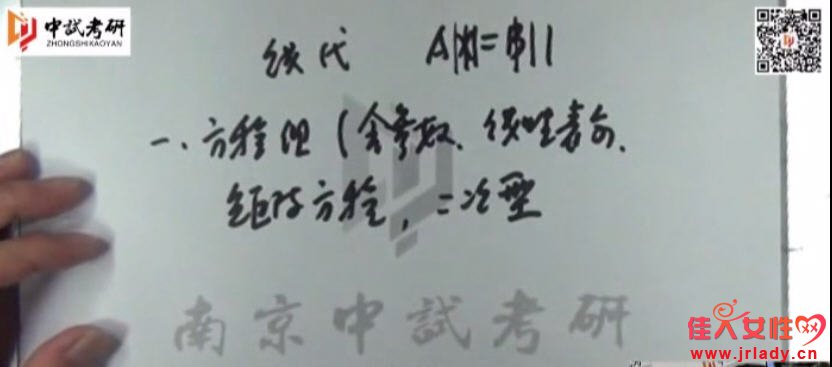 中試考研
ZHONGSHIKAOYAN
线代 A|X|=
一、方程组(含参数、线性表示、
矩阵方程,二次型
南京中試考研
佳人女性网
www.jrlady.cn